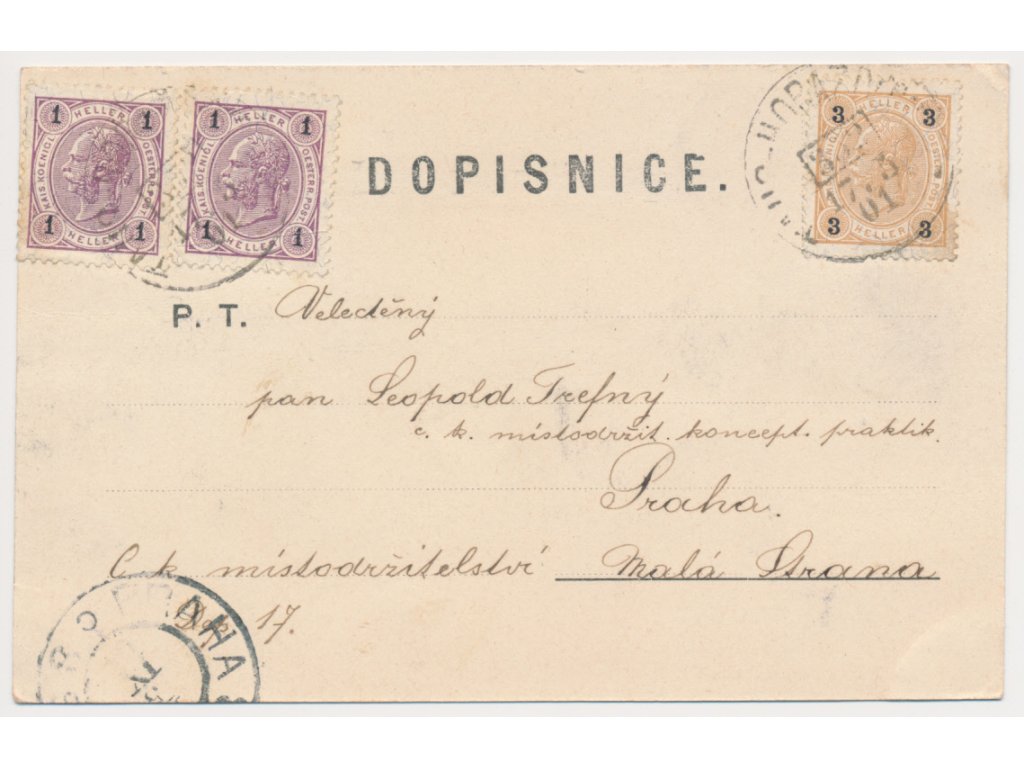 1 HELLER 1
KAIS. KOENIGL. OESTERR. POST
1 HELLER 1
1 HELLER 1
KAIS. KOENIGL. OESTERR. POST
1 HELLER 1
3 HELLER 3
3 HELLER 3
DOPISNICE.
P. T. Velectěný
pan Leopold Trefný
c. k. místodržit. koncept. praktik.
Praha.
C. k místodržitelství Malá Strana
17.
PRAHA